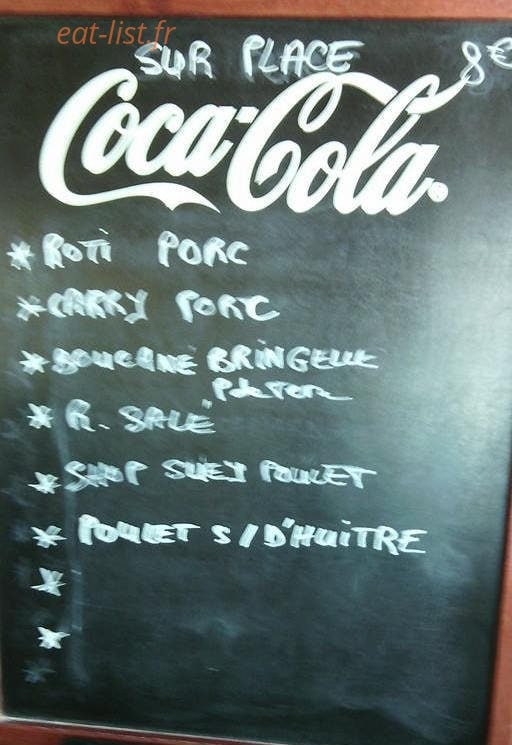 eat-list.fr
SUR PLACE 8€
Coca-Cola®
* ROTi PORC
* CARRY PORC
* BOUCANÉ BRINGELLE
* R. SALÉ
* SHOP SUEY POULET
* POULET S/D'HUiTRE
*
*
*